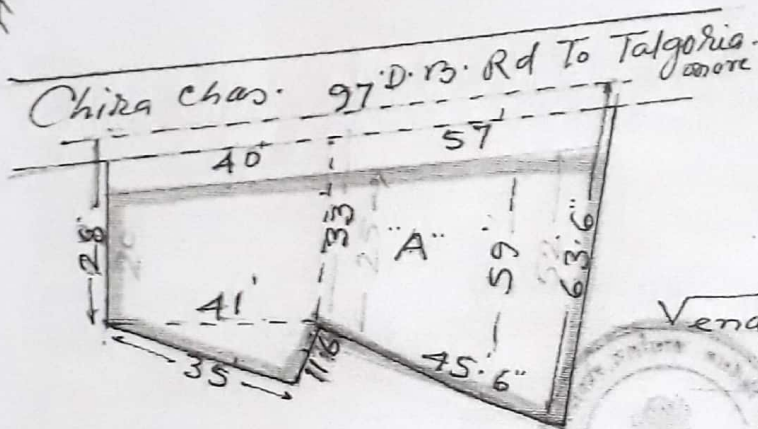 Chira Chas. 97' D.B. Rd To Talgoria
more
40' 57'
28' 33' "A" 59' 63'.6"
41'
35' 11'.6" 45'.6"
Vend